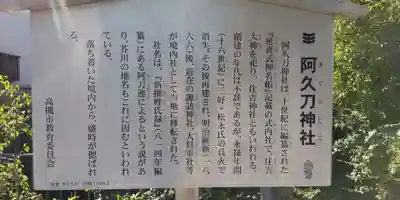 阿久刀神社
阿久刀神社は、十世紀に編纂された
『延喜式神名帳』記載の式内社で、住吉
大神を祀り、住吉神社ともいわれる。
創建の年代は不詳であるが、永禄年間
(十六世紀)に三好・松永氏の兵火で
消失。その後再建され、明治維新(一八
六八)後、近在の諏訪神社、大将軍社等
が境内社として当地に移転された。
社名は、『新撰姓氏録』(八一四年編
纂)にある阿刀連によるという説があ
り、芥川の地名もこれに因むといわれ
ている。
落ち着いた境内から、盛時が偲ばれ
る。
高槻市教育委員会